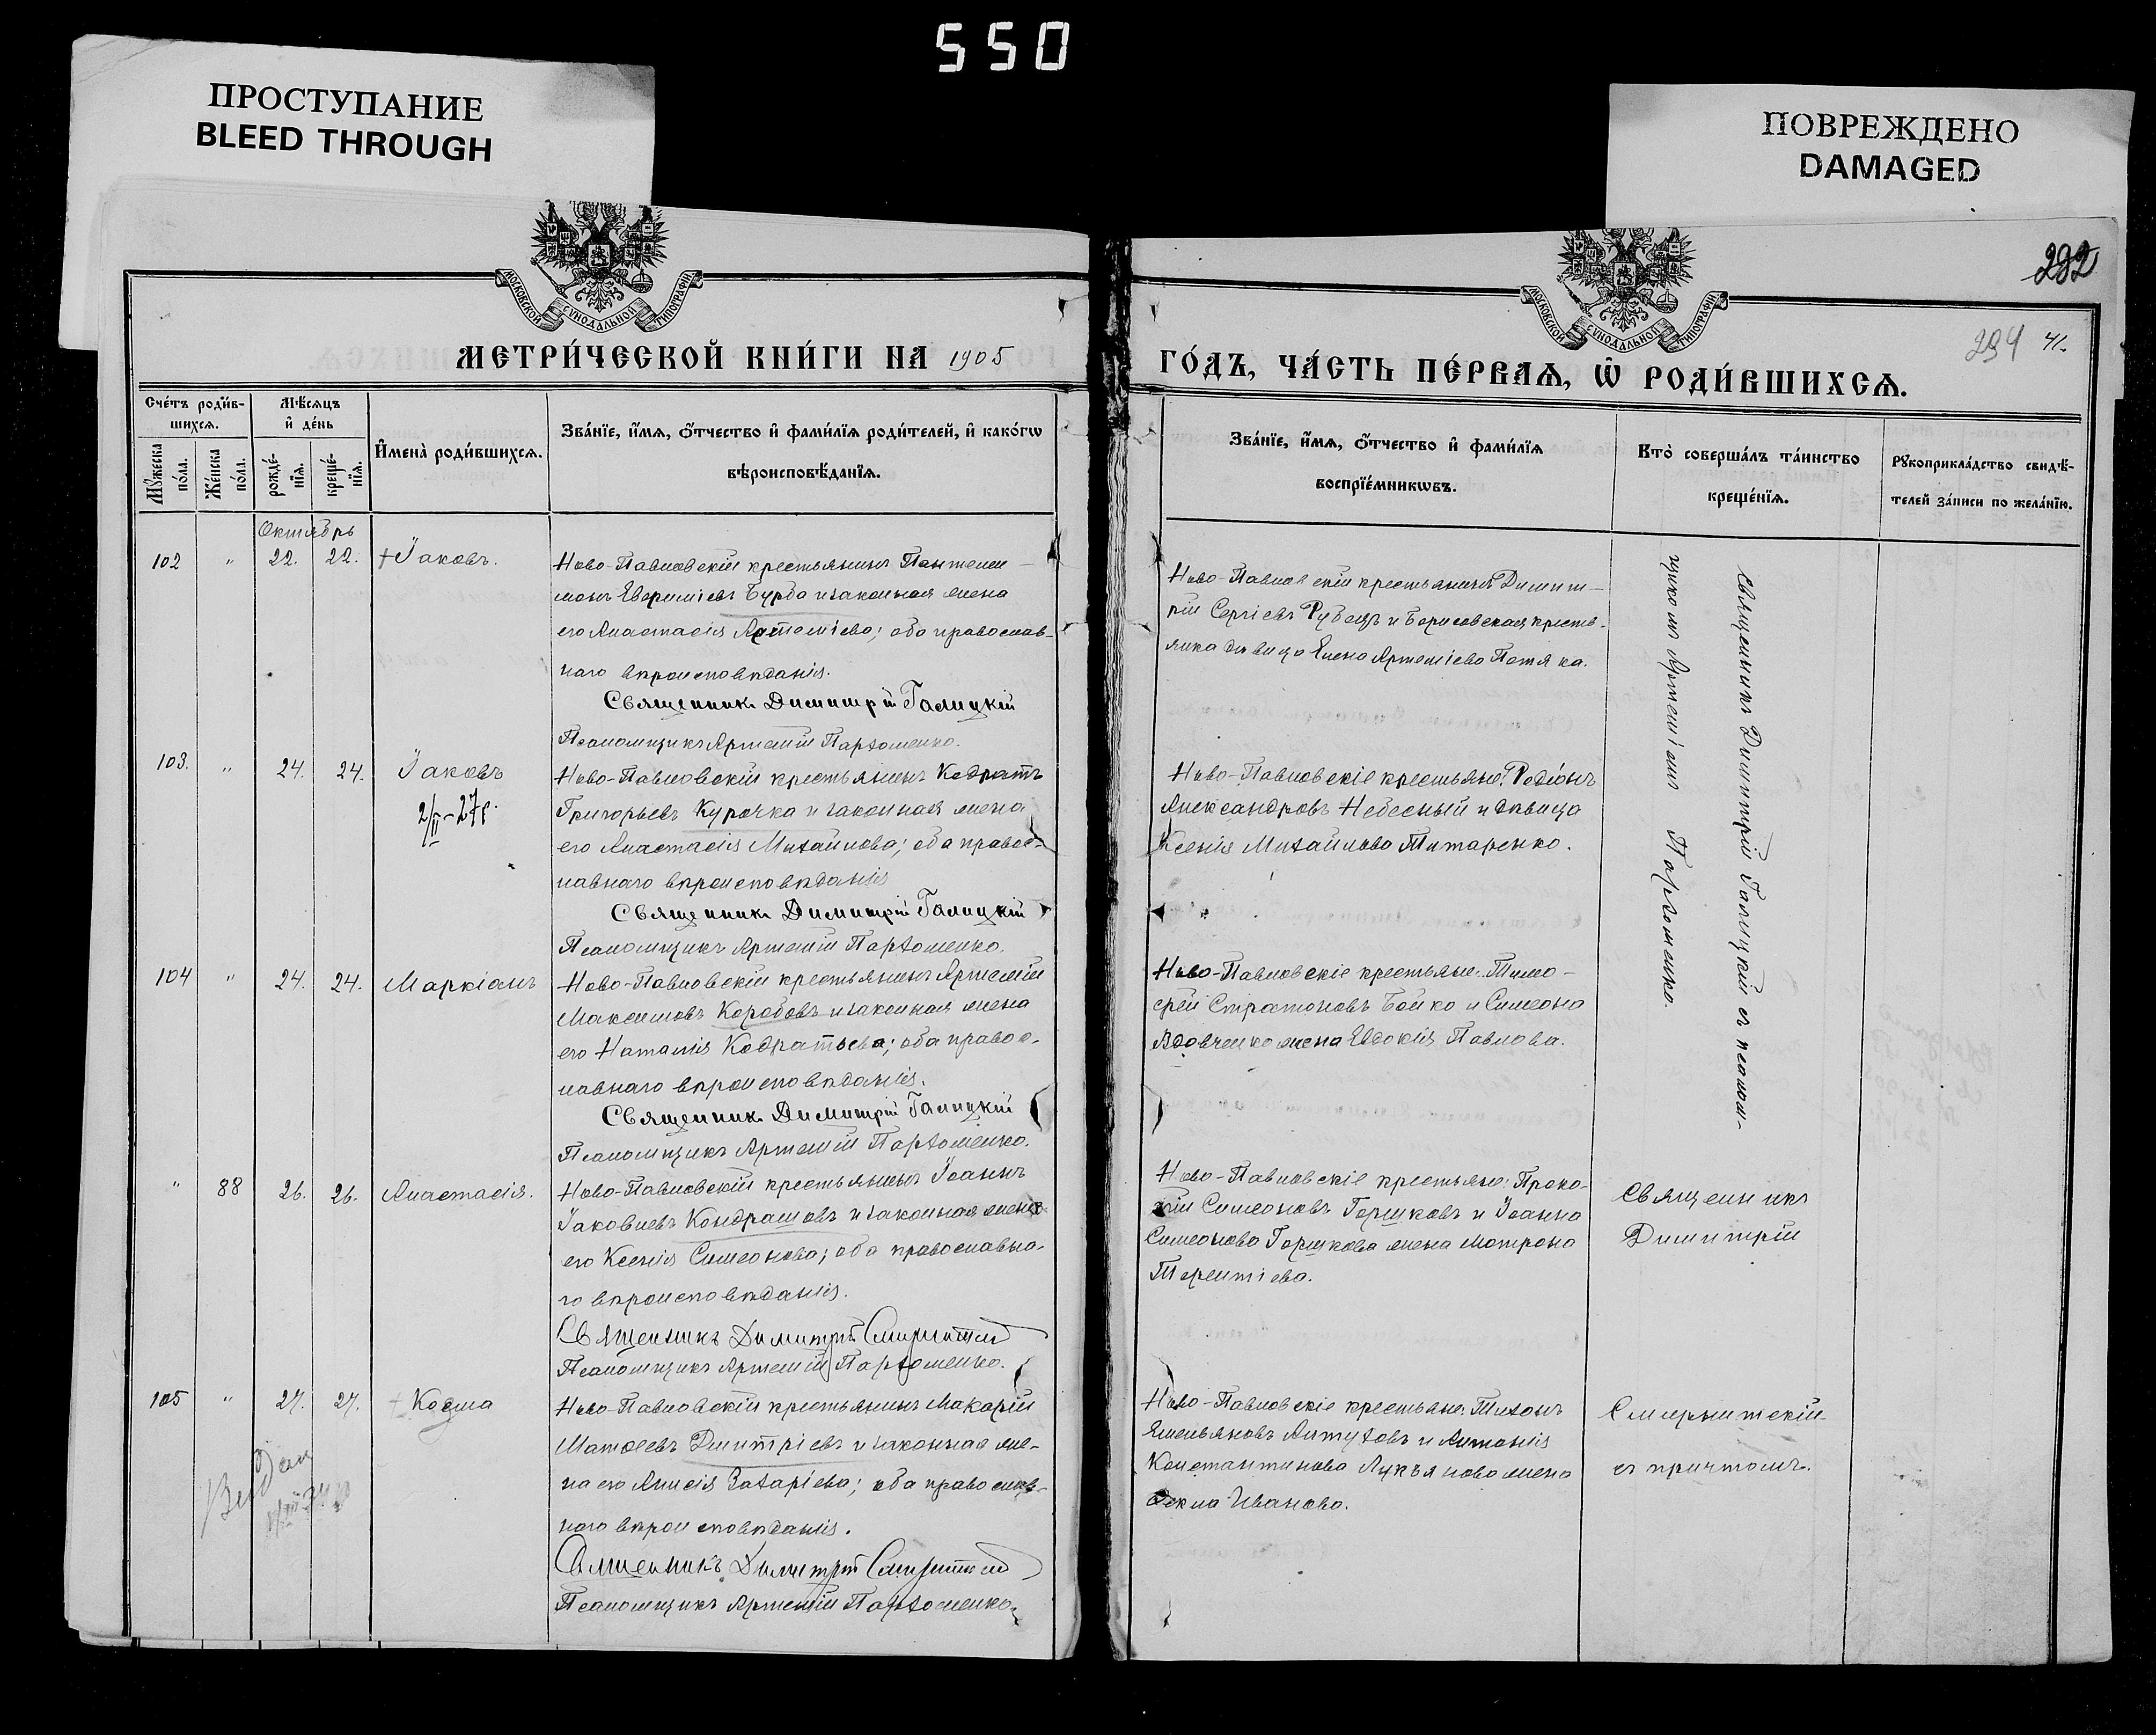 550
ПРОСТУПАНИЕ
BLEED THROUGH
ПОВРЕЖДЕНО
DAMAGED
МОСКОВСКОЙ СѴНОДАЛЬНОЙ ТИПОГРАФІИ
МОСКОВСКОЙ СѴНОДАЛЬНОЙ ТИПОГРАФІИ
282
294 41.
МЕТРИ́ЧЕСКОЙ КНИ́ГИ НА 1905
ГО́ДЪ, ЧА́СТЬ ПЕ́РВАѦ, Ѡ҆ РОДИ́ВШИХСѦ.
Сче́тъ роди́в-
шихсѧ.
Мѣ́сѧцъ
и҆ де́нь
Мꙋ́жеска
по́ла.
Же́нска
по́ла.
рожде́-
нїѧ.
креще́-
нїѧ.
И҆мена̀ роди́вшихсѧ.
Зва́нїе, и҆́мѧ, ѻ҆́тчество и҆ фами́лїѧ роди́телей, и҆ како́гѡ
вѣроисповѣ́данїѧ.
Зва́нїе, и҆́мѧ, ѻ҆́тчество и҆ фами́лїѧ
воспрїе́мникѡвъ.
Кто̀ соверша́лъ та́инство
креще́нїѧ.
Рꙋкоприкла́дство свидѣ́-
телей за́писи по жела́нїю.
Октябрь
102 " 22. 22. †Іаковъ.
Ново-Павловскій крестьянинъ Пантелеи-
монъ Евфиміевъ Бурба и законная жена
его Анастасія Артеміева; оба православ-
наго вѣроисповѣданія.
Священникъ Димитрій Галицкій
Псаломщикъ Артемій Пархоменко.
Ново-Павловскій крестьянинъ Димит-
рій Сергіевъ Рубецъ и Борисовская кресть-
янка дѣвица Елена Артеміева Потяка.
Священникъ Димитрій Галицкій съ псалом-
щикомъ Артеміемъ Пархоменко.
103. " 24. 24. Іаковъ
2/II-27г.
Ново-Павловскій крестьянинъ Кодратъ
Григорьевъ Курочка и законная жена
его Анастасія Михайлова; оба правос-
лавнаго вѣроисповѣданія
Священникъ Димитрій Галицкій
Псаломщикъ Артемій Пархоменко.
Ново-Павловскіе крестьяне: Родіонъ
Александровъ Небесный и дѣвица
Ксенія Михайлова Титаренко.
104 " 24. 24. Маркіанъ
Ново-Павловскій крестьянинъ Артемій
Максимовъ Коробовъ и законная жена
его Наталія Кодратьева; оба правос-
лавнаго вѣроисповѣданія.
Священникъ Димитрій Галицкій
Псаломщикъ Артемій Пархоменко.
Ново-Павловскіе крестьяне: Тимо-
фей Стратоновъ Бойко и Симеона
Вдовченко жена Евдокія Павлова.
" 88 26. 26. Анастасія.
Ново-Павловскій крестьянинъ Іоаннъ
Іаковлевъ Кондрашовъ и законная жена
его Ксенія Симеонова; оба православна-
го вѣроисповѣданія.
Священникъ Димитрій
Псаломщикъ Артемій Пархоменко.
Ново-Павловскіе крестьяне: Проко-
пій Симеоновъ Горшковъ и Іоанна
Симеонова Горшкова жена Матрона
Терентіева.
Священникъ
Димитрій
105 " 27. 27. † Косма
Ново-Павловскій крестьянинъ Макарій
Матѳеевъ Дмитріевъ и законная же-
на его Анисія Захаріева; оба православ-
наго вѣроисповѣданія.
Священникъ Димитрій
Псаломщикъ Артемій Пархоменко.
Ново-Павловскіе крестьяне: Тихонъ
Емельяновъ и Антонія
Константинова Лукьянова жена
Ѳекла Иванова.
съ причтомъ.